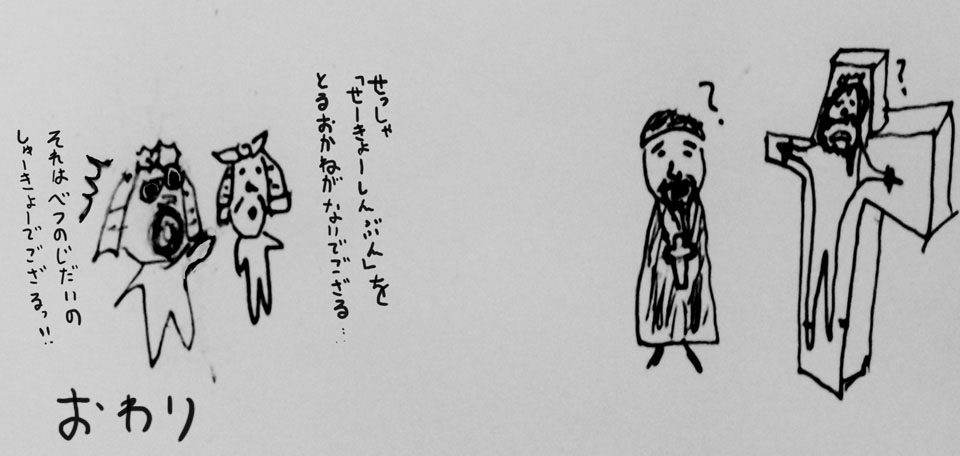 ?
?
せっしゃ
「せーきょーしんぶん」を
とるおかねがないでござる…
それはべつのじだいの
しゅーきょーでござるっ!!
おわり